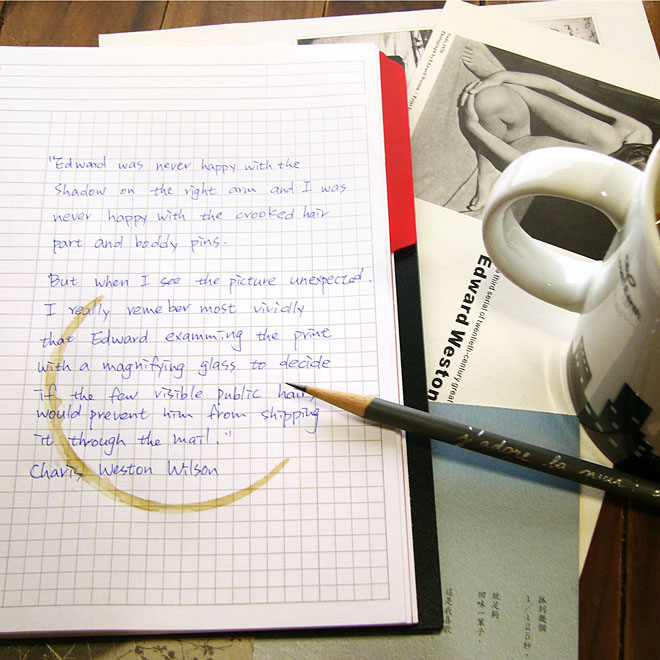 "Edward was never happy with the
Shadow on the right arm and I was
never happy with the crooked hair
part and boddy pins.
But when I see the picture unexpected.
I really remeber most vividly
that Edward examming the print
with a magnifying glass to decide
if the few visible public hairs
would prevent him from shipping
it through the mail."
Charis Weston Wilson
Edward Weston
third serial of twentieth-century great
j'adore la
1/125秒,
回味一輩子.
這是我喜歡